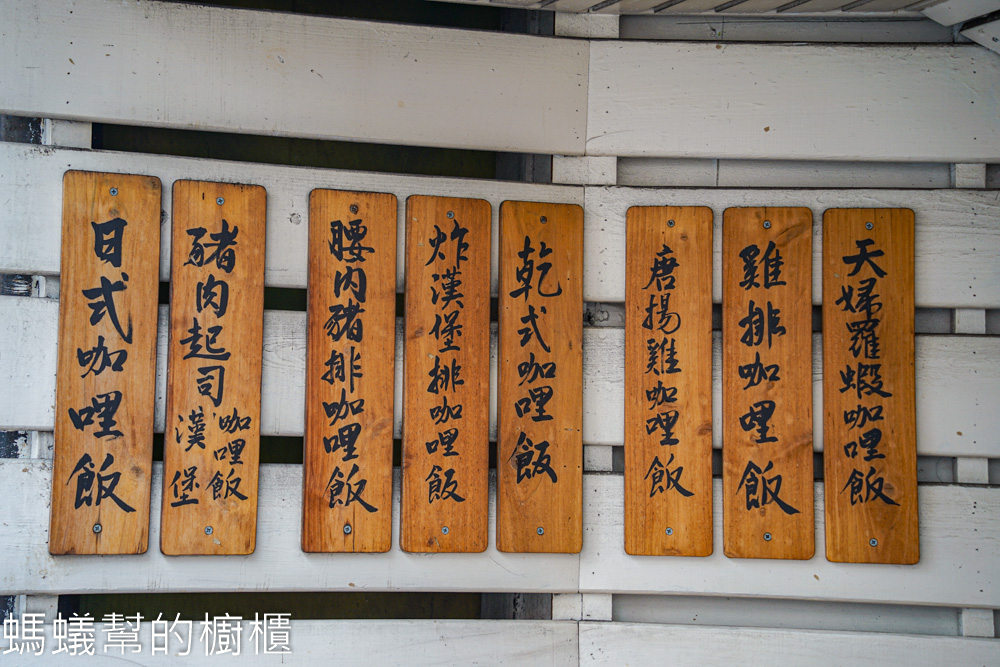 日式咖哩飯
豬肉起司漢堡咖哩飯
腰內豬排咖哩飯
炸漢堡排咖哩飯
乾式咖哩飯
唐揚雞咖哩飯
雞排咖哩飯
天婦羅蝦咖哩飯
螞蟻幫的櫥櫃